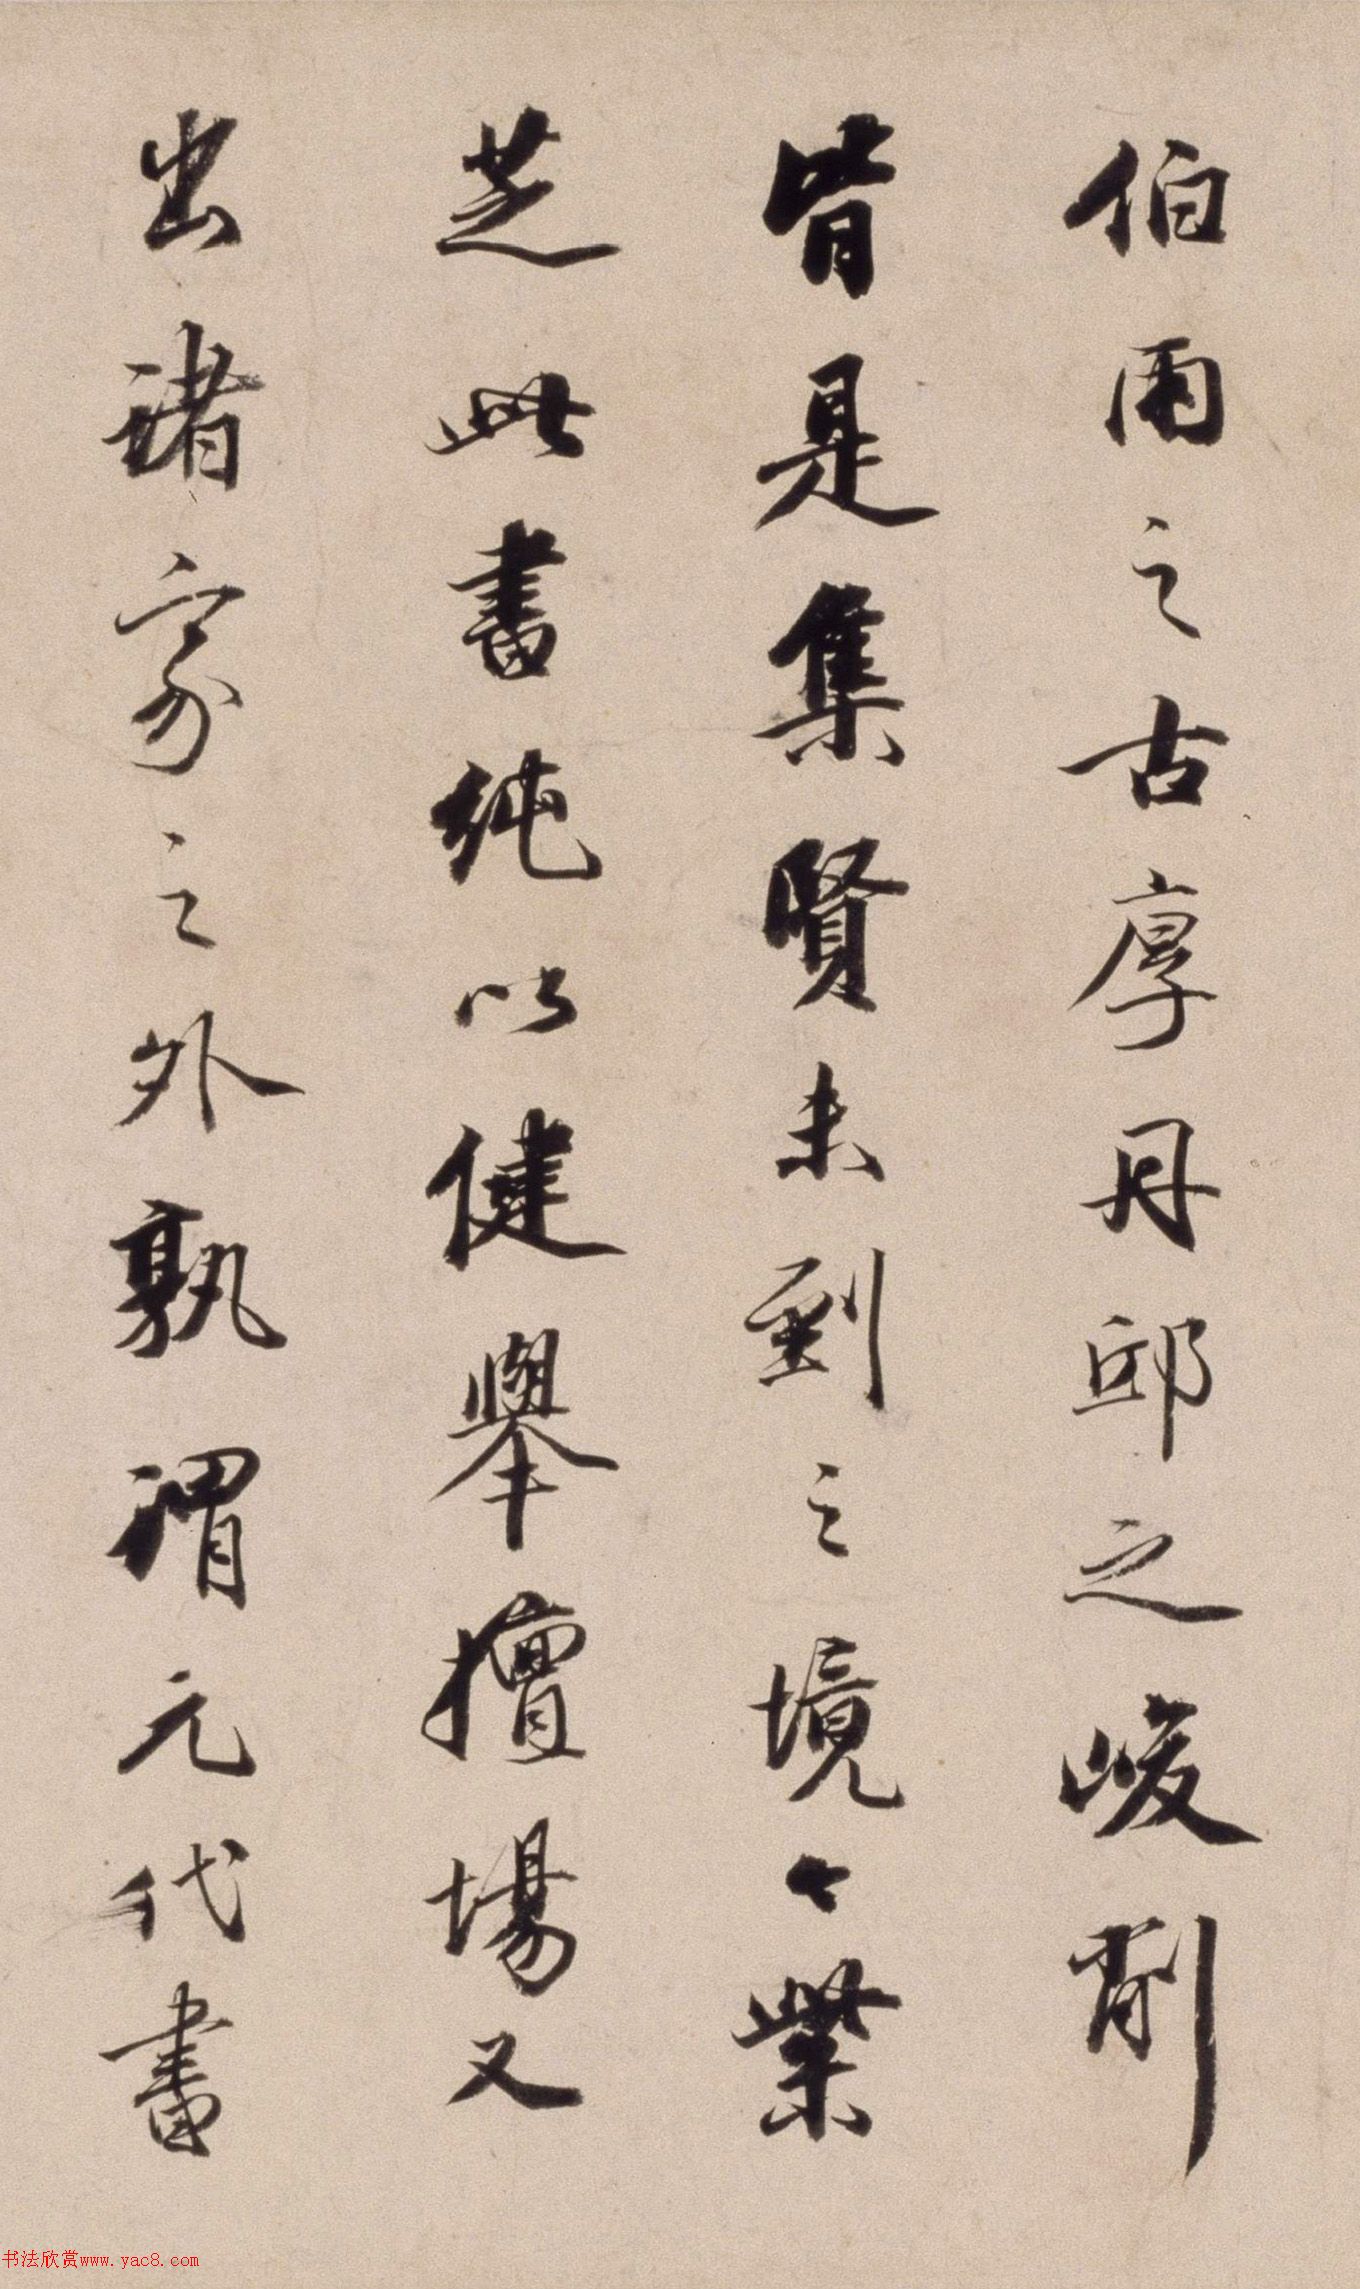 伯雨之古厚丹邱之峻削
皆是集賢未到之境〻紫
芝此書純以健舉擅場又
出諸家之外孰謂元代書
书法欣赏www.yac8.com